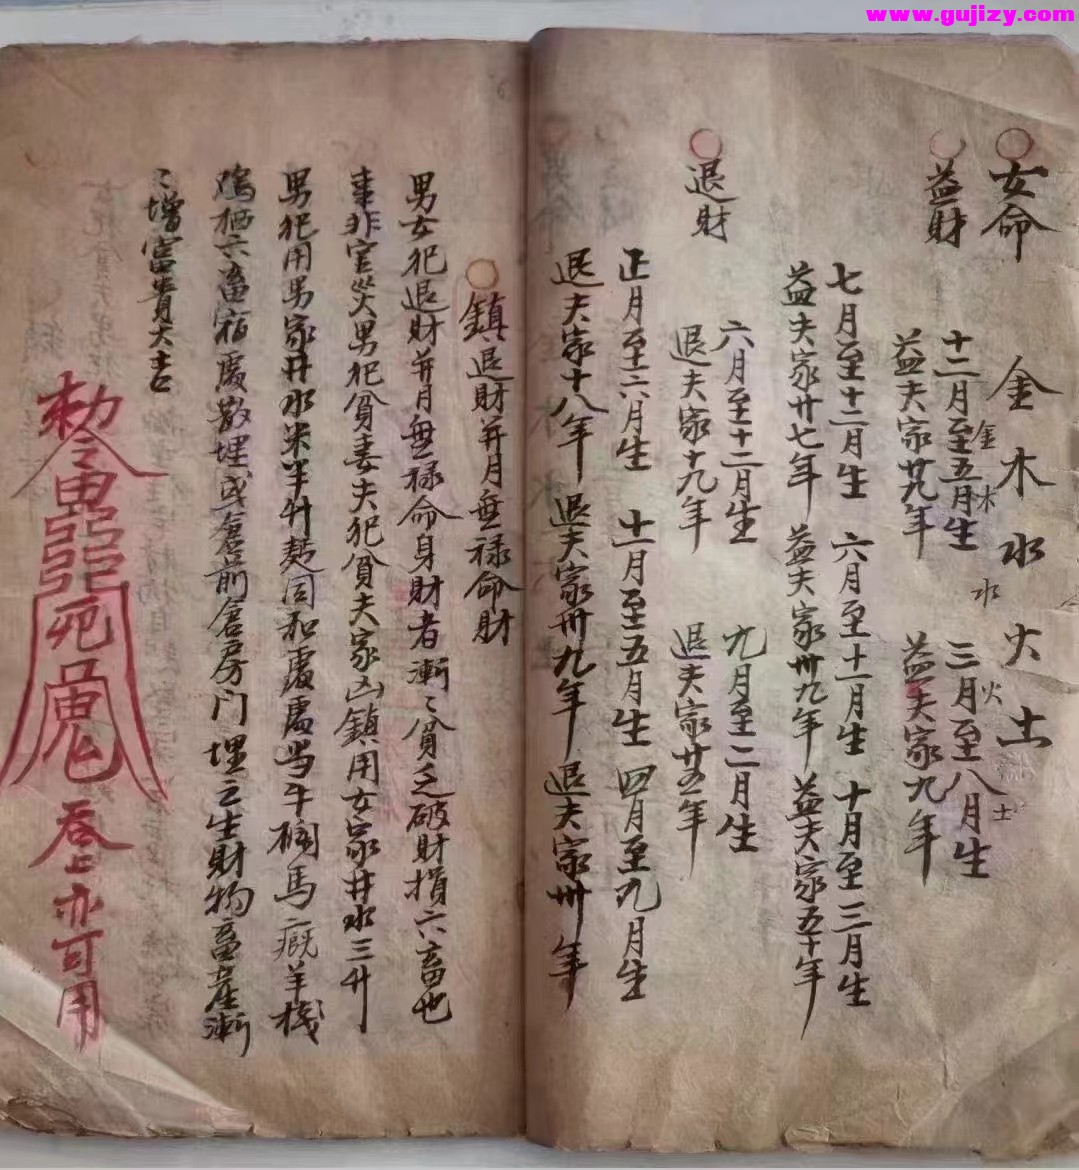 www.gujizy.com
女命 金木水火土
益財 十二月至五月生 三月至八月生
金木水火土
益夫家廿九年 益夫家九年
七月至十二月生 六月至十一月生 十月至三月生
益夫家廿七年 益夫家卅九年 益夫家五十年
退財 六月至十二月生 九月至二月生
退夫家十九年 退夫家廿五年
正月至六月生 十一月至五月生 四月至九月生
退夫家十八年 退夫家卅九年 退夫家卅年
鎮退財并月無祿命財
男女犯退財并月無祿命身財者漸〻貧乏破財損六畜也
事非官災男犯貧妻夫犯貧夫家凶鎮用女家井水三升
男犯用男家井水米半升麸同和處處当牛欄馬廐羊棧
鸡栖六畜宿處散埋或倉前倉房门埋之生財物畜産漸
〻增富貴大吉
敕令 吞上亦可用